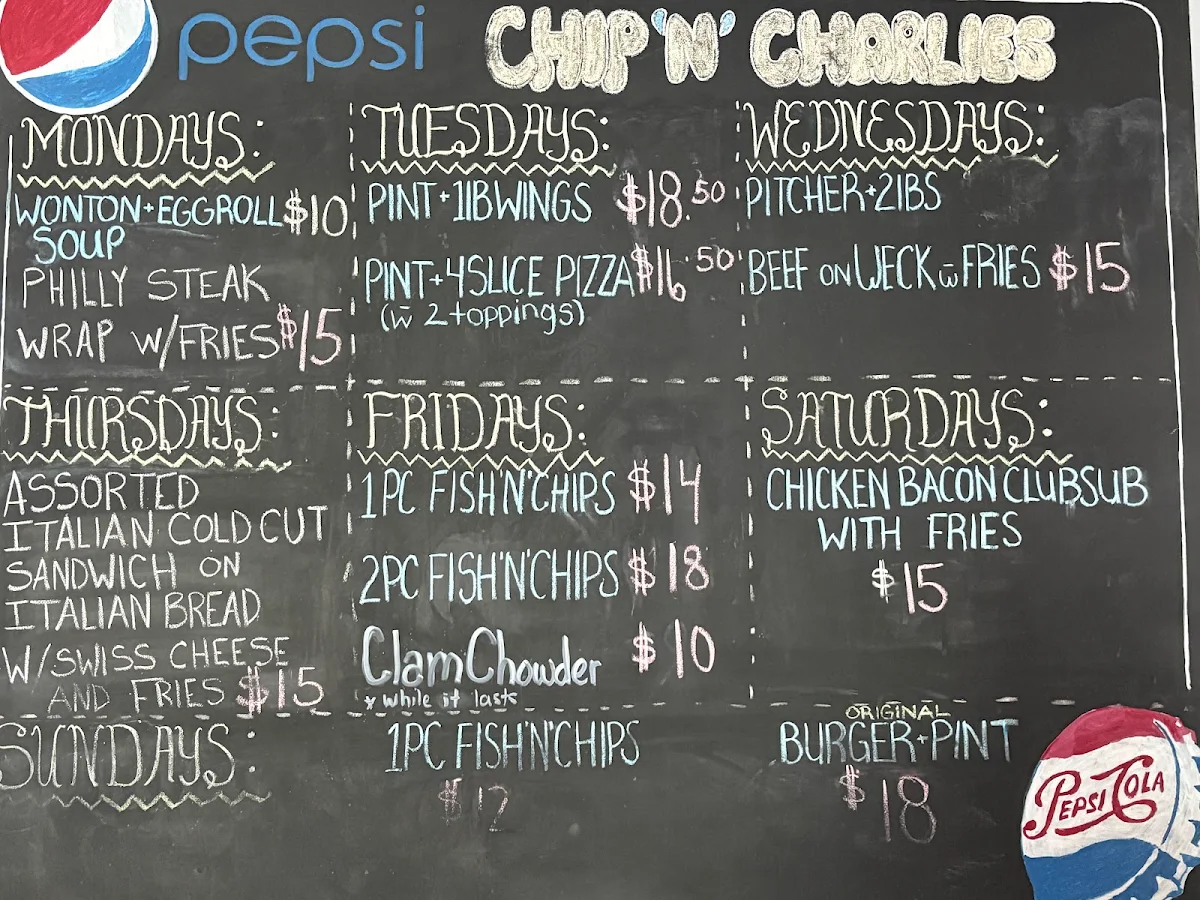 pepsi
CHIP 'N' CHARLIES
MONDAYS:
WONTON+EGGROLL $10
SOUP
PHILLY STEAK
WRAP W/FRIES $15
TUESDAYS:
PINT+1lBWINGS $18.50
PINT+4SLICE PIZZA $16.50
(w̄ 2 toppings)
WEDNESDAYS:
PITCHER+2lBS
BEEF ON WECK w̄ FRIES $15
THURSDAYS:
ASSORTED
ITALIAN COLD CUT
SANDWICH ON
ITALIAN BREAD
W/SWISS CHEESE
AND FRIES $15
FRIDAYS:
1PC FISH'N'CHIPS $14
2PC FISH'N'CHIPS $18
Clam Chowder $10
* while it lasts
SATURDAYS:
CHICKEN BACON CLUBSUB
WITH FRIES
$15
SUNDAYS:
1PC FISH'N'CHIPS
$12
ORIGINAL
BURGER+PINT
$18
PEPSI COLA